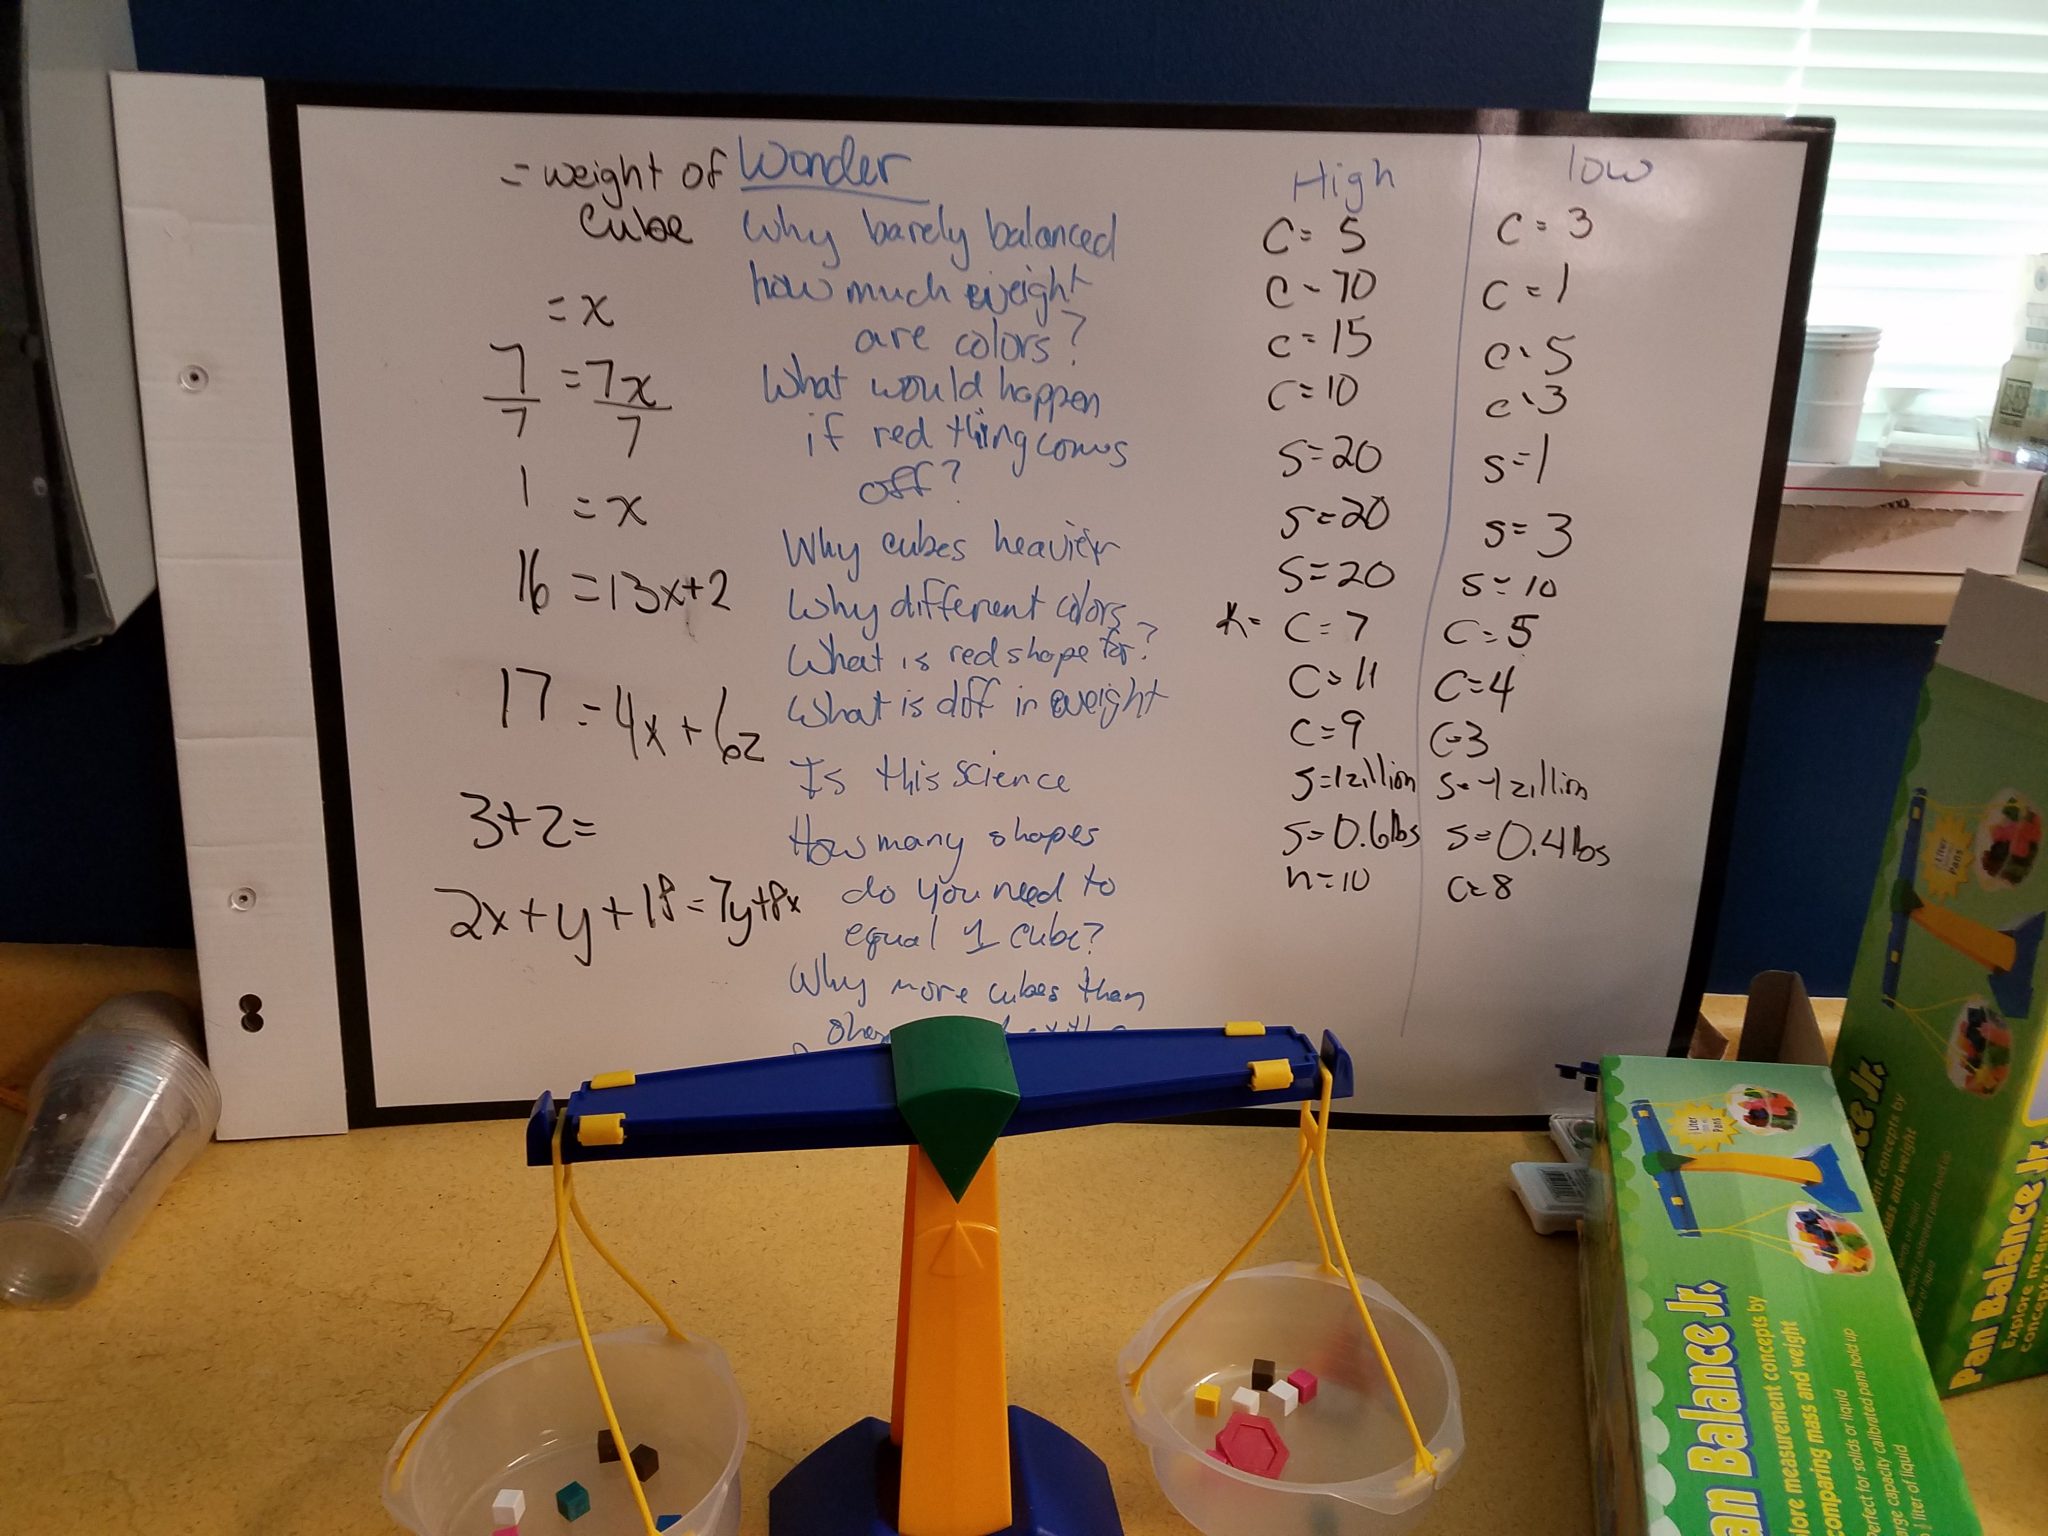 = weight of
Cube
= x
7 = 7x
7 7
1 = x
16 = 13x+2
17 = 4x + 6z
3+2=
2x+y+18=7y+8x
Wonder
Why barely balanced
how much weight
are colors?
What would happen
if red thing comes
off?
Why cubes heavier
Why different colors
What is red shape for?
What is diff in weight
Is this science
How many shapes
do you need to
equal 1 cube?
Why more cubes than
High
C = 5
C = 70
C = 15
C = 10
S=20
S=20
S=20
C = 7
C = 11
C = 9
S=1zillion
S=0.6lbs
n=10
low
C = 3
C = 1
C = 5
C = 3
S=1
S=3
S=10
C=5
C=4
C=3
S=-1zillion
S=0.4lbs
C=8
Liter
Pans
an Balance Jr.
lore measurement concepts by
comparing mass and weight
erfect for solids or liquid
rge capacity calibrated pans hold up
liter of liquid
Pan Balance Jr.
Explore
ce Jr.
nt concepts by
ass and weight
Liter
Pans